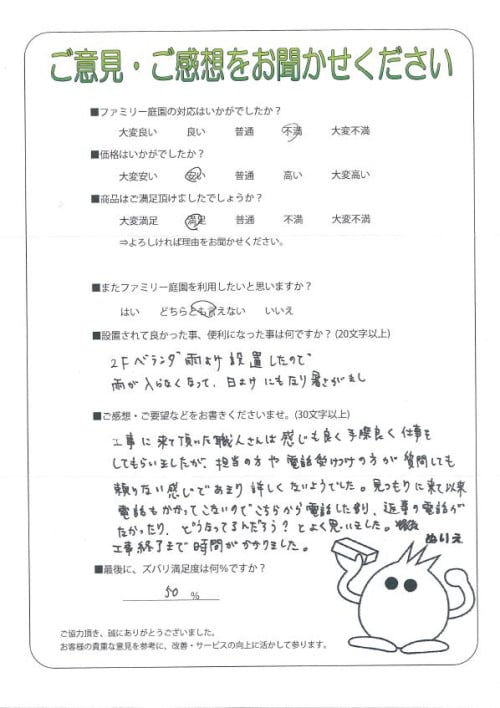 ご意見・ご感想をお聞かせください
■ファミリー庭園の対応はいかがでしたか?
大変良い 良い 普通 不満 大変不満
■価格はいかがでしたか?
大変安い 安い 普通 高い 大変高い
■商品はご満足頂けましたでしょうか?
大変満足 満足 普通 不満 大変不満
⇒よろしければ理由をお聞かせください。
■またファミリー庭園を利用したいと思いますか?
はい どちらとも言えない いいえ
■設置されて良かった事、便利になった事は何ですか?(20文字以上)
2Fベランダ雨よけ設置したので
雨が入らなくなって、日よけにもなり暑さがまし
■ご感想・ご要望などをお書きくださいませ。(30文字以上)
工事に来て頂いた職人さんは感じも良く手際良く仕事を
してもらいましたが、担当の方や電話受けつけの方が質問しても
頼りない感じであまり詳しくないようでした。見つもりに来て以来
電話もかかってこないのでこちらから電話した割、返事の電話が
なかったり、どうなってるんだろう?とよく思いました。
工事終了まで時間がかかりました。
ぬりえ
■最後に、ズバリ満足度は何%ですか?
50 %
ご協力頂き、誠にありがとうございました。
お客様の貴重な意見を参考に、改善・サービスの向上に活かして参ります。